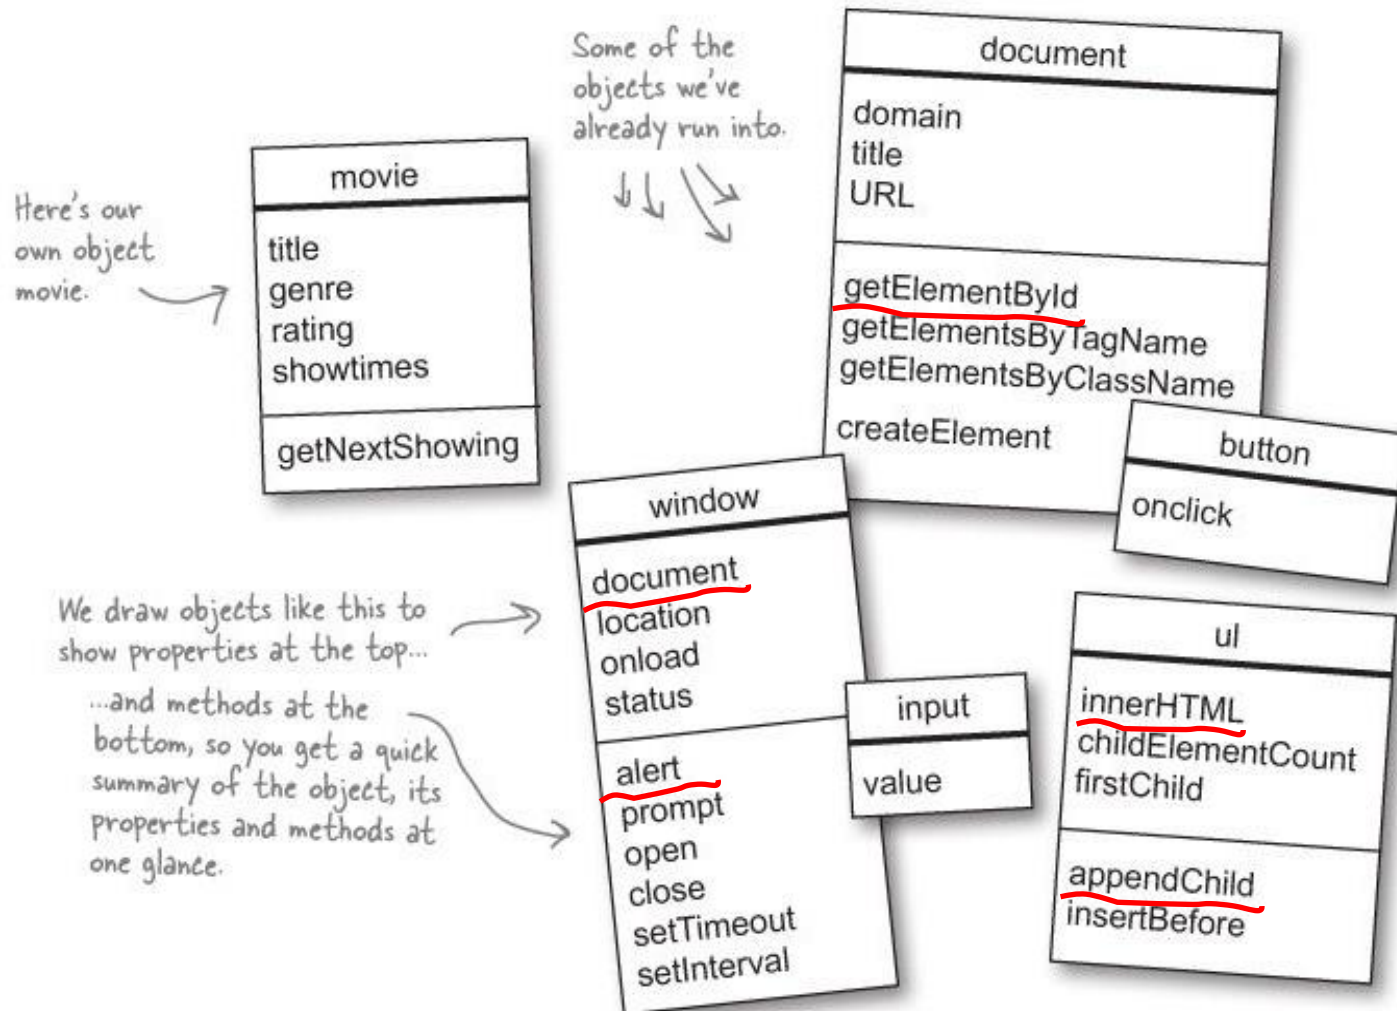 Some of the
objects we've
already run into.
Here's our
own object
movie.
movie
title
genre
rating
showtimes
getNextShowing
document
domain
title
URL
getElementById
getElementsByTagName
getElementsByClassName
createElement
button
onclick
We draw objects like this to
show properties at the top...
...and methods at the
bottom, so you get a quick
summary of the object, its
properties and methods at
one glance.
window
document
location
onload
status
alert
prompt
open
close
setTimeout
setInterval
input
value
ul
innerHTML
childElementCount
firstChild
appendChild
insertBefore